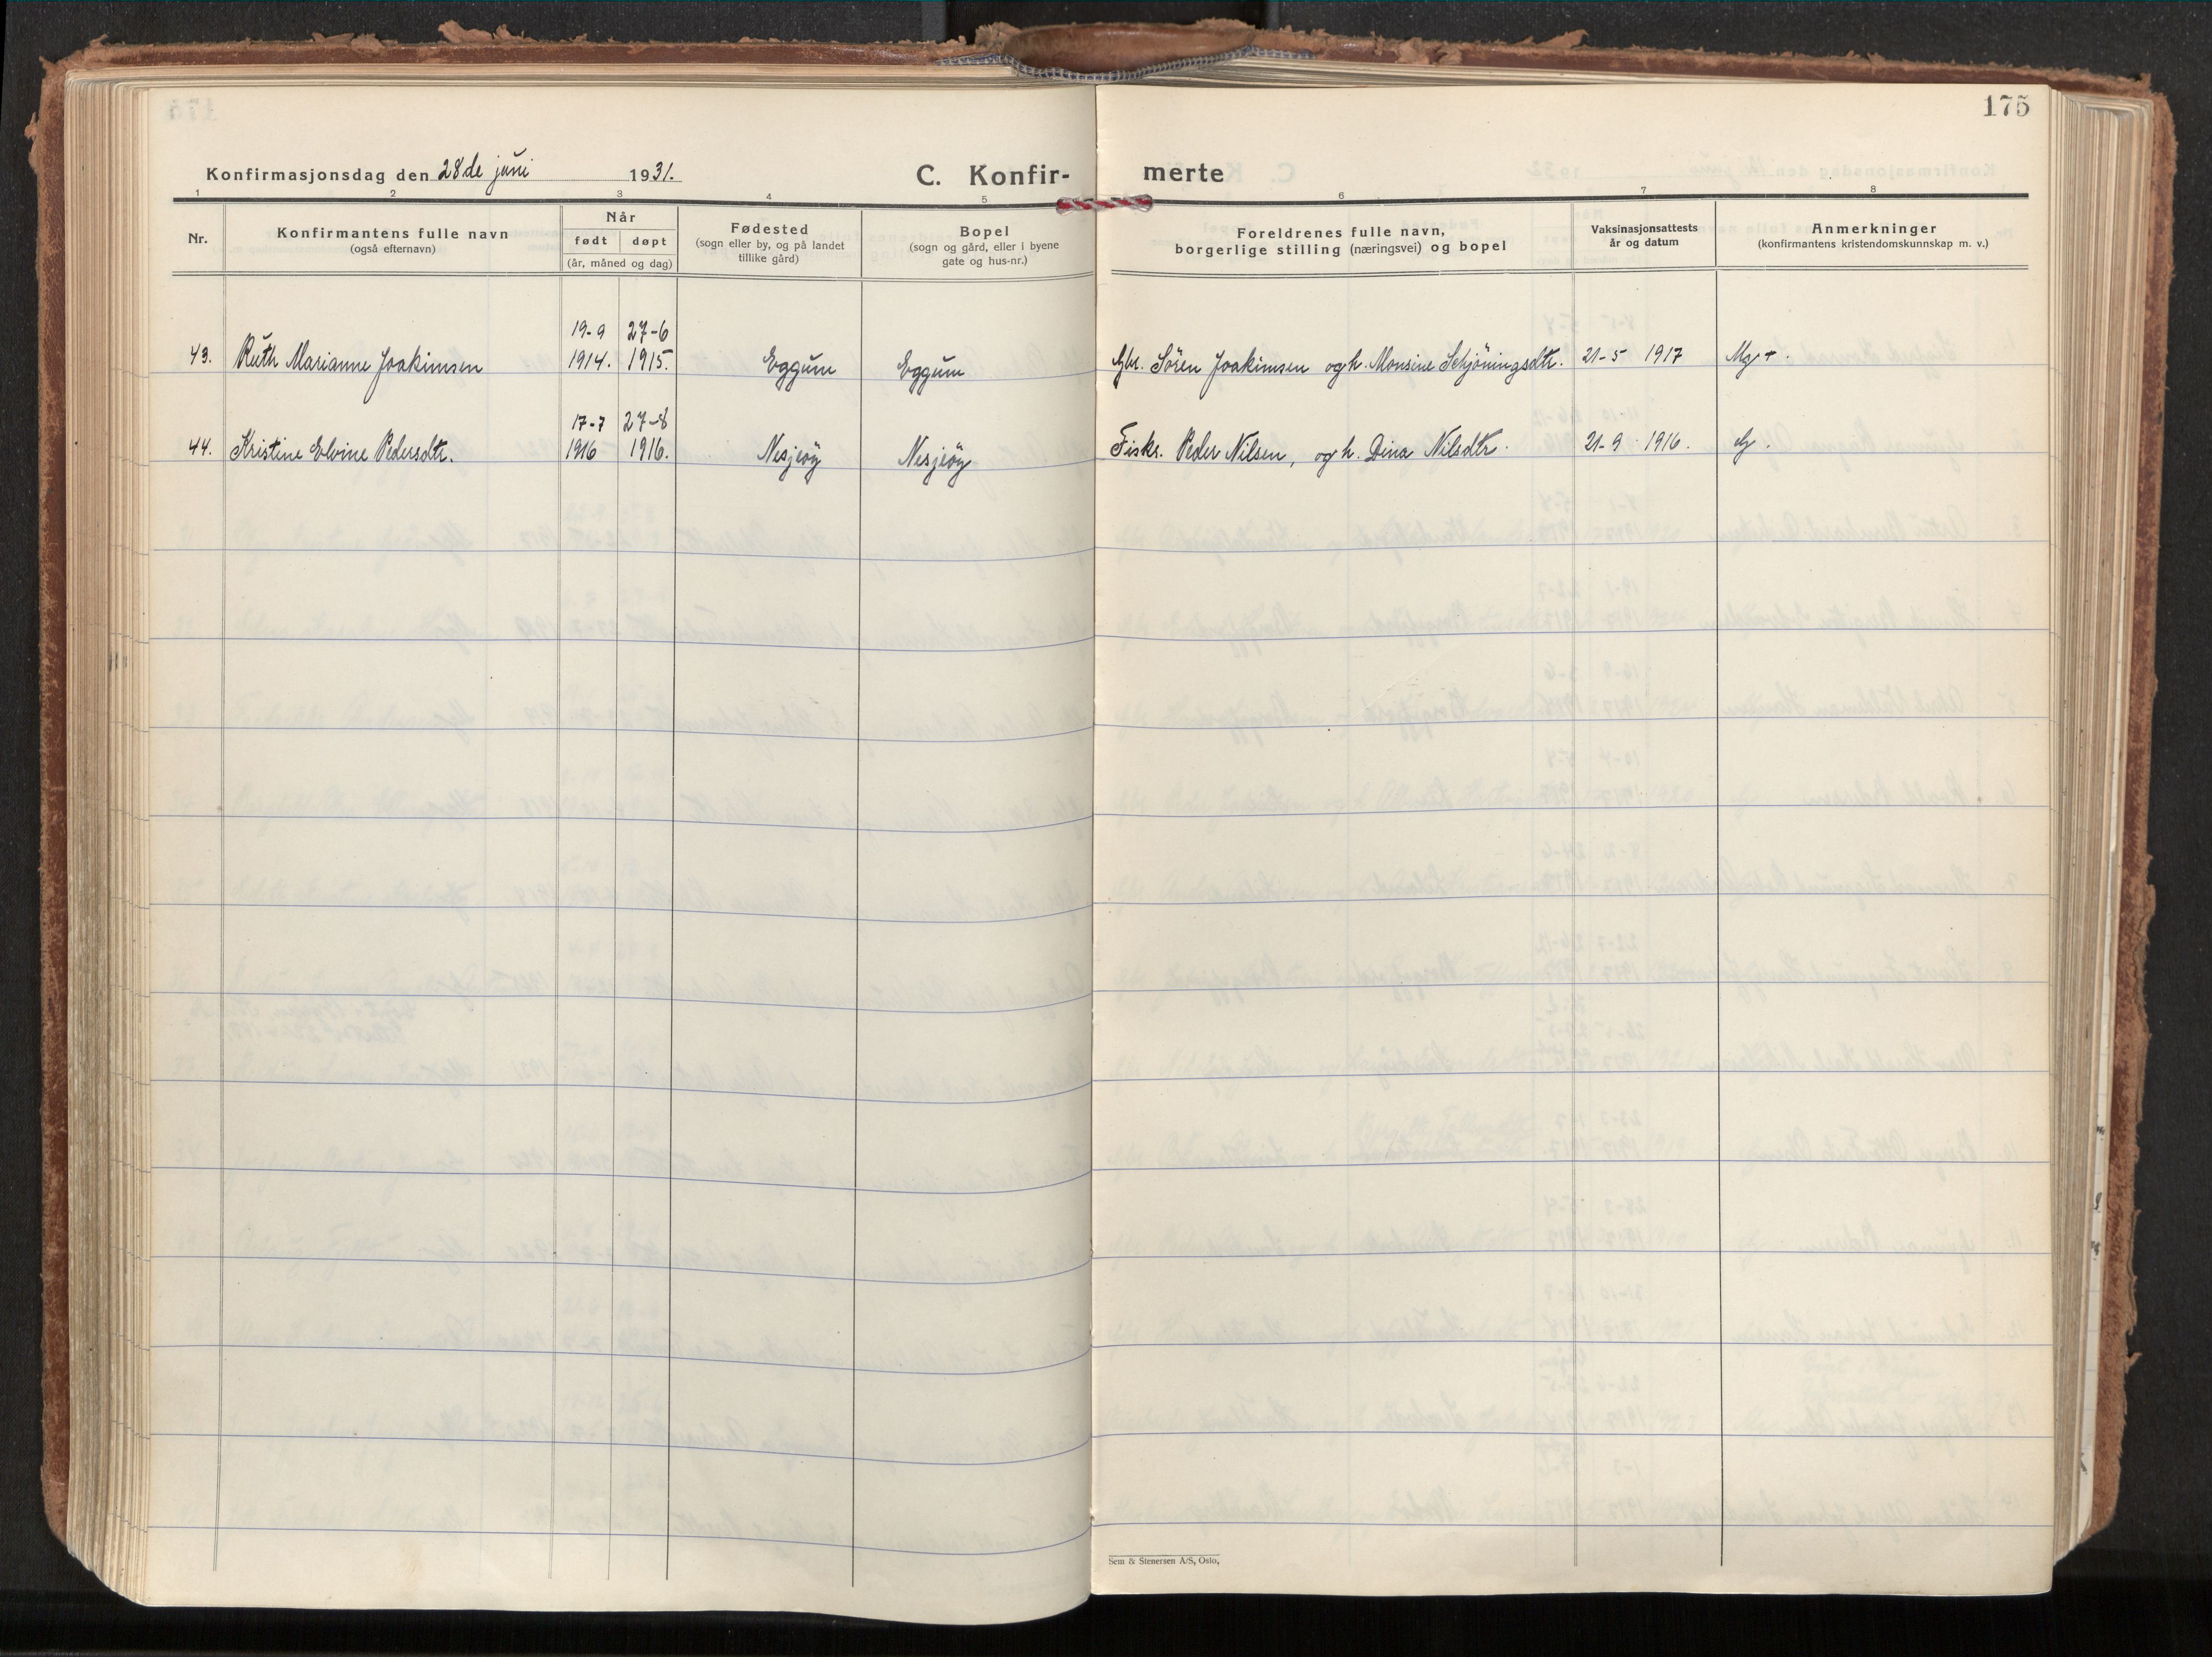 175
Konfirmasjonsdag den 28de juni 1931.
C. Konfir- merte
1 2 3 4 5 6 7 8
Nr.
Konfirmantens fulle navn
(også efternavn)
Når
født døpt
(år, måned og dag)
Fødested
(sogn eller by, og på landet
tillike gård)
Bopel
(sogn og gård, eller i byene
gate og hus-nr.)
Foreldrenes fulle navn,
borgerlige stilling (næringsvei) og bopel
Vaksinasjonsattests
år og datum
Anmerkninger
(konfirmantens kristendomskunnskap m. v.)
19-9 27-6
43. Ruth Marianne Joakimsen 1914. 1915. Eggum Eggum Gbr. Sören Joakimsen og h. Monsine Schjöningsdtr. 21-5 1917 Mg+.
17-7 27-8
44. Kristine Elvine Pedersdtr. 1916 1916. Nesjeöy Nesjeöy Fiskr. Peder Nilsen, og h. Dina Nilsdtr. 21-9 1916. g.
Sem & Stenersen A/S, Oslo,